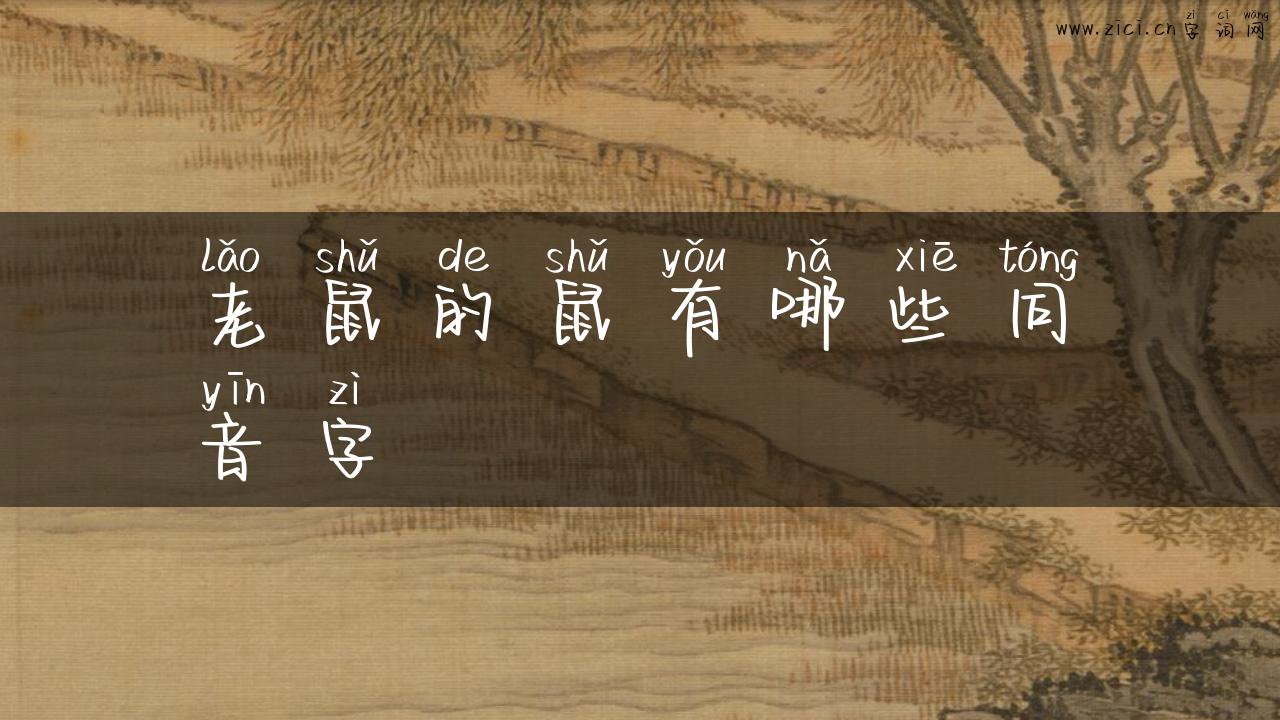 zì cí wǎng
www.zici.cn 字 词 网
lǎo shǔ de shǔ yǒu nǎ xiē tóng
老 鼠 的 鼠 有 哪 些 同
yīn zì
音 字